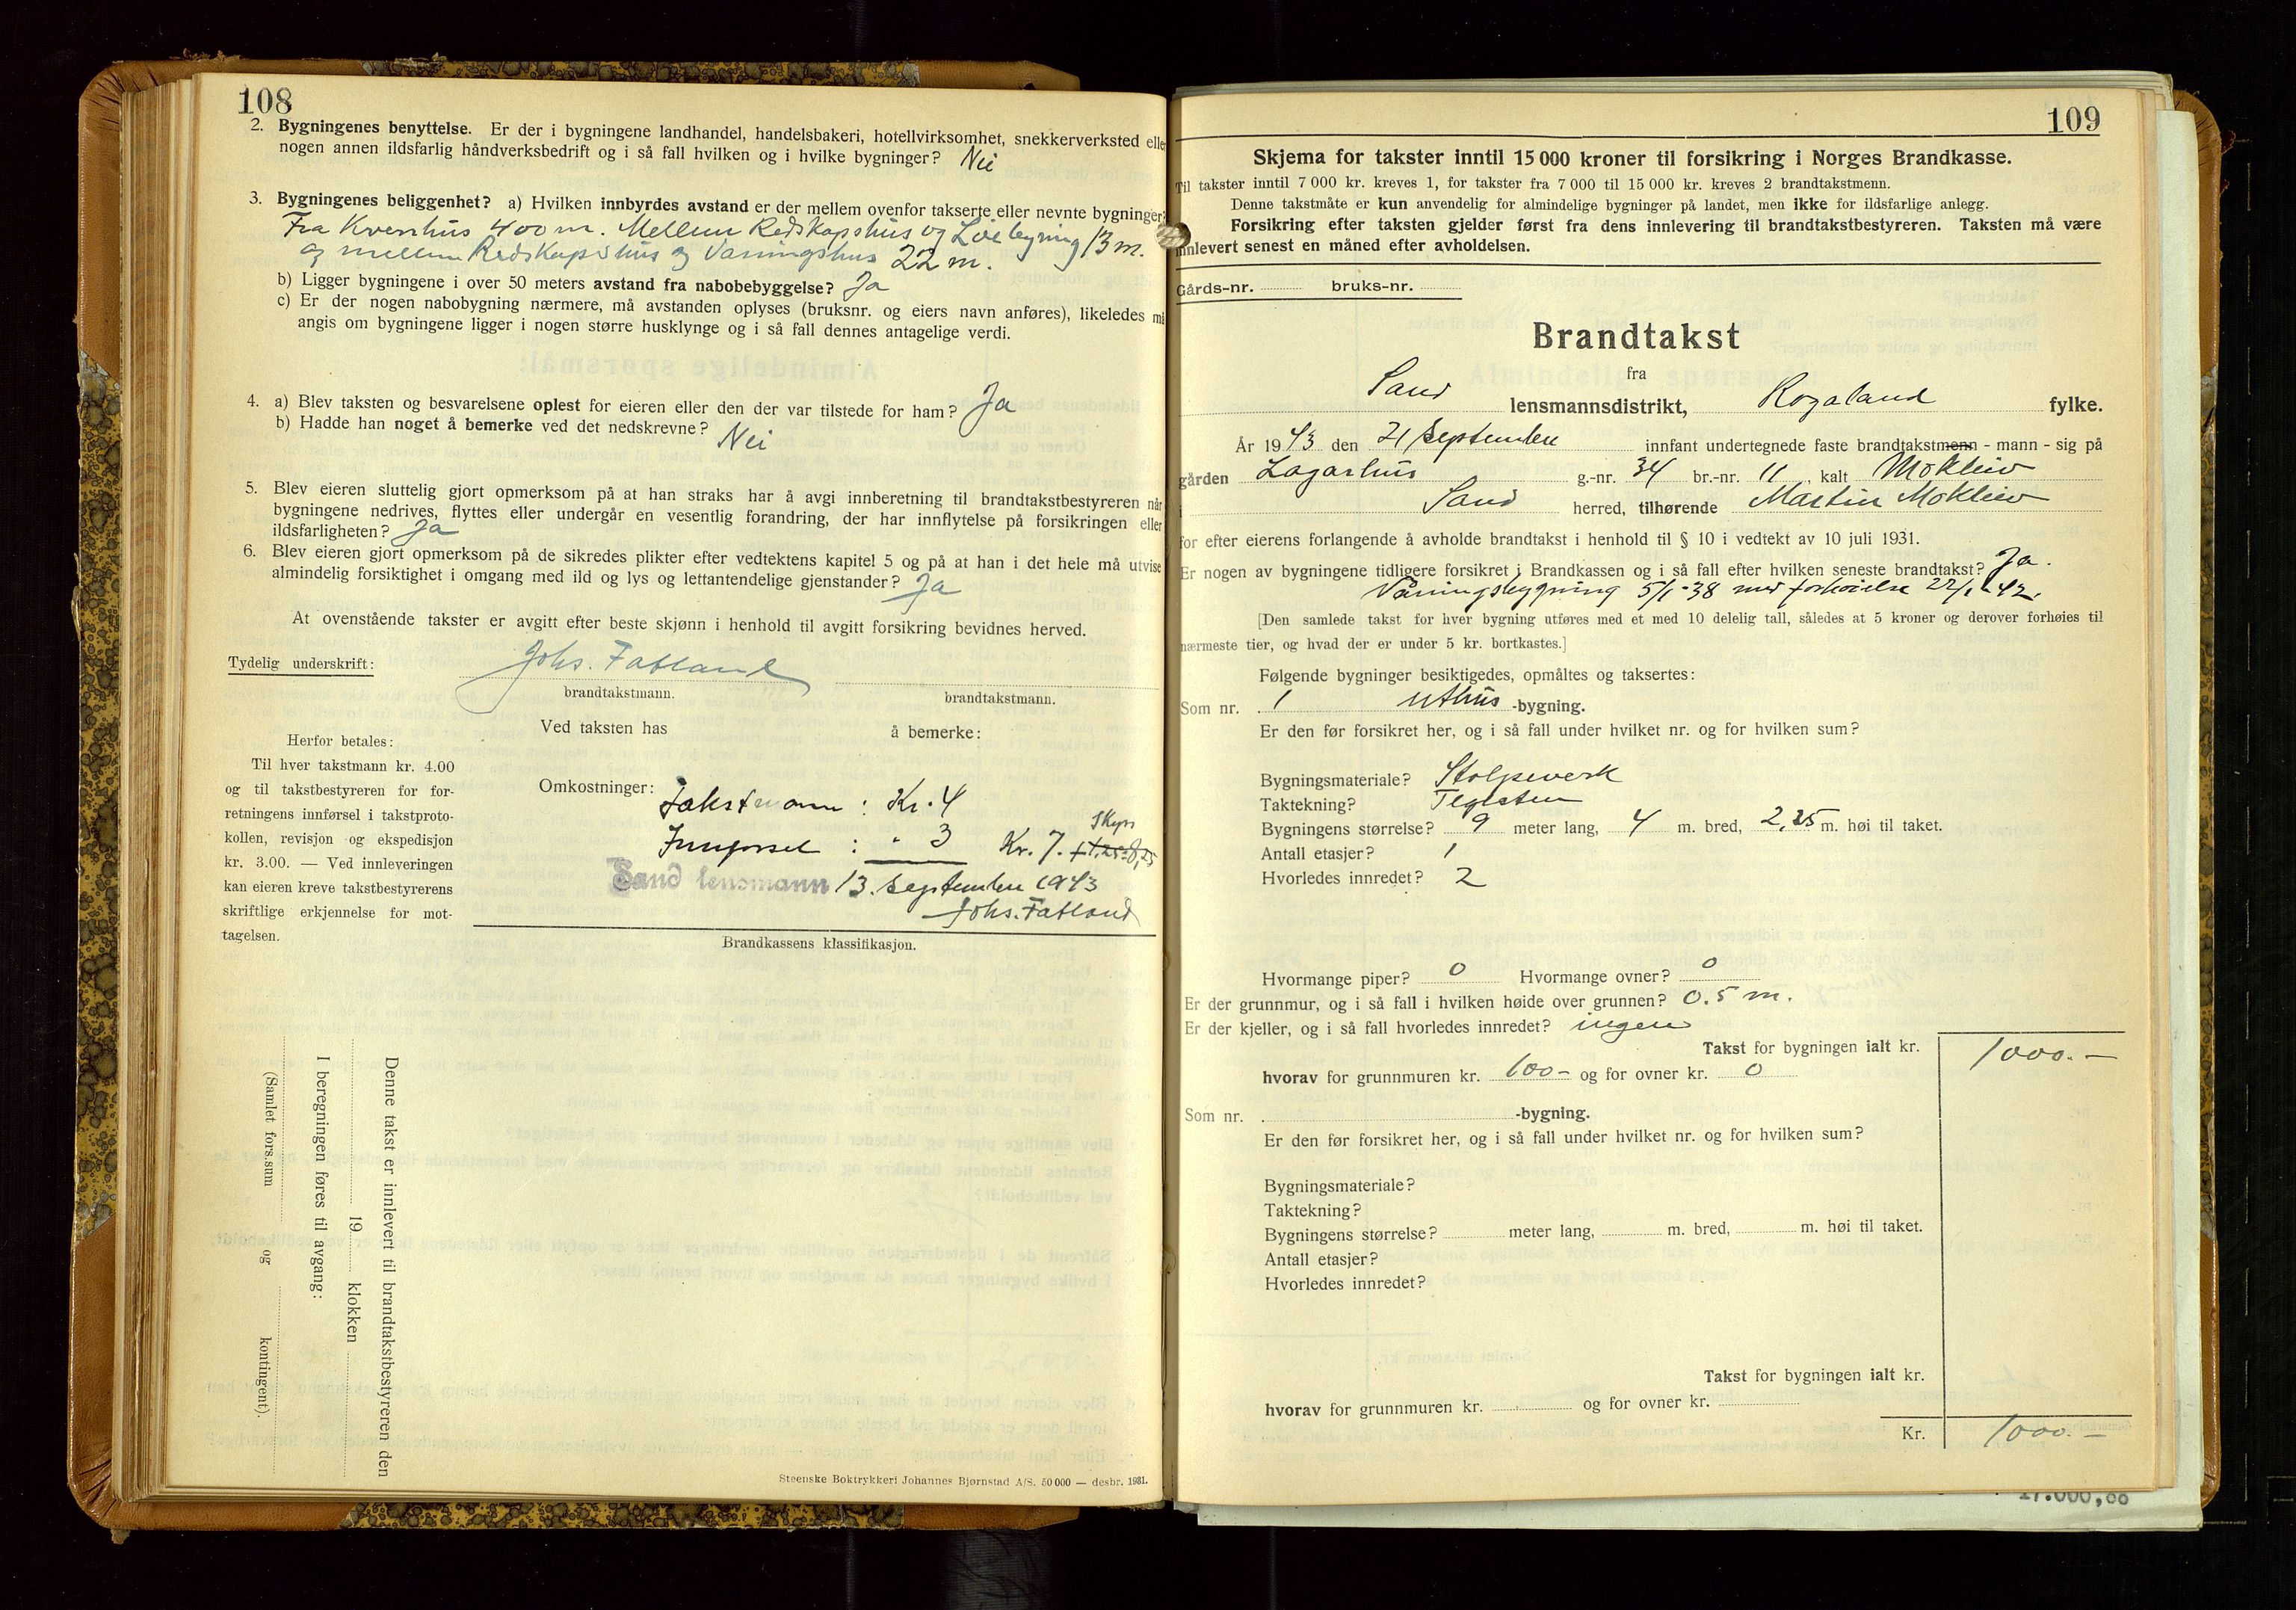 108
2. Bygningenes benyttelse. Er der i bygningene landhandel, handelsbakeri, hotellvirksomhet, snekkerverksted eller
nogen annen ildsfarlig håndverksbedrift og i så fall hvilken og i hvilke bygninger? Nei
3. Bygningenes beliggenhet? a) Hvilken innbyrdes avstand er der mellem ovenfor takserte eller nevnte bygninger?
Fra Kvernhus 400 m. Mellem Redskapshus og Löebygning 13 m.
og mellem Redskapshus og Vaningshus 22 m.
b) Ligger bygningene i over 50 meters avstand fra nabobebyggelse? Ja
c) Er der nogen nabobygning nærmere, må avstanden oplyses (bruksnr. og eiers navn anføres), likeledes må
angis om bygningene ligger i nogen større husklynge og i så fall dennes antagelige verdi.
4. a) Blev taksten og besvarelsene oplest for eieren eller den der var tilstede for ham? Ja
b) Hadde han noget å bemerke ved det nedskrevne? Nei
5. Blev eieren sluttelig gjort opmerksom på at han straks har å avgi innberetning til brandtakstbestyreren når
bygningene nedrives, flyttes eller undergår en vesentlig forandring, der har innflytelse på forsikringen eller
ildsfarligheten? Ja
6. Blev eieren gjort opmerksom på de sikredes plikter efter vedtektens kapitel 5 og på at han i det hele må utvise
almindelig forsiktighet i omgang med ild og lys og lettantendelige gjenstander? Ja
At ovenstående takster er avgitt efter beste skjønn i henhold til avgitt forsikring bevidnes herved.
Tydelig underskrift: Johs. Fatland
brandtakstmann. brandtakstmann.
Ved taksten has å bemerke:
Herfor betales:
Til hver takstmann kr. 4.00
og til takstbestyreren for for-
retningens innførsel i takstproto-
kollen, revisjon og ekspedisjon
kr. 3.00. — Ved innleveringen
kan eieren kreve takstbestyrerens
skriftlige erkjennelse for mot-
tagelsen.
Omkostninger: Takstmann : Kr. 4
Innførsel : " 3 Kr. 7.
Sand lensmann 13. september 1943
Johs. Fatland
Brandkassens klassifikasjon.
Denne takst er innlevert til brandtakstbestyreren den
19 klokken
I beregningen føres til avgang:
(Samlet fors.sum og kontingent).
Steenske Boktrykkeri Johannes Bjørnstad A/S. 50 000 — desbr. 1931.
109
Skjema for takster inntil 15 000 kroner til forsikring i Norges Brandkasse.
Til takster inntil 7 000 kr. kreves 1, for takster fra 7 000 til 15 000 kr. kreves 2 brandtakstmenn.
Denne takstmåte er kun anvendelig for almindelige bygninger på landet, men ikke for ildsfarlige anlegg.
Forsikring efter taksten gjelder først fra dens innlevering til brandtakstbestyreren. Taksten må være
innlevert senest en måned efter avholdelsen.
Gårds-nr. bruks-nr.
Brandtakst
fra
Sand lensmannsdistrikt, Rogaland fylke.
År 1943 den 21 september innfant undertegnede faste brandtakstmenn - mann - sig på
gården Lagarhus g.-nr. 34 br.-nr. 11, kalt Mokleiv
i Sand herred, tilhørende Martin Mokleiv
for efter eierens forlangende å avholde brandtakst i henhold til § 10 i vedtekt av 10 juli 1931.
Er nogen av bygningene tidligere forsikret i Brandkassen og i så fall efter hvilken seneste brandtakst? Ja.
Våningsbygning 5/1-38 med forhøielse 22/1-42.
[Den samlede takst for hver bygning utføres med et med 10 delelig tall, således at 5 kroner og derover forhøies til
nærmeste tier, og hvad der er under 5 kr. bortkastes.]
Følgende bygninger besiktigedes, opmåltes og taksertes:
Som nr. 1 uthus -bygning.
Er den før forsikret her, og i så fall under hvilket nr. og for hvilken sum?
Bygningsmateriale? Stolpeverk
Taktekning? Teglsten
Bygningens størrelse? 9 meter lang, 4 m. bred, 2,25 m. høi til taket.
Antall etasjer? 1
Hvorledes innredet? 2
Hvormange piper? 0 Hvormange ovner? 0
Er der grunnmur, og i så fall i hvilken høide over grunnen? 0.5 m.
Er der kjeller, og i så fall hvorledes innredet? ingen
Takst for bygningen ialt kr. 1000.-
hvorav for grunnmuren kr. 100- og for ovner kr. 0
Som nr. -bygning.
Er den før forsikret her, og i så fall under hvilket nr. og for hvilken sum?
Bygningsmateriale?
Taktekning?
Bygningens størrelse? meter lang, m. bred, m. høi til taket.
Antall etasjer?
Hvorledes innredet?
Takst for bygningen ialt kr.
hvorav for grunnmuren kr. og for ovner kr.
Kr. 1000.-